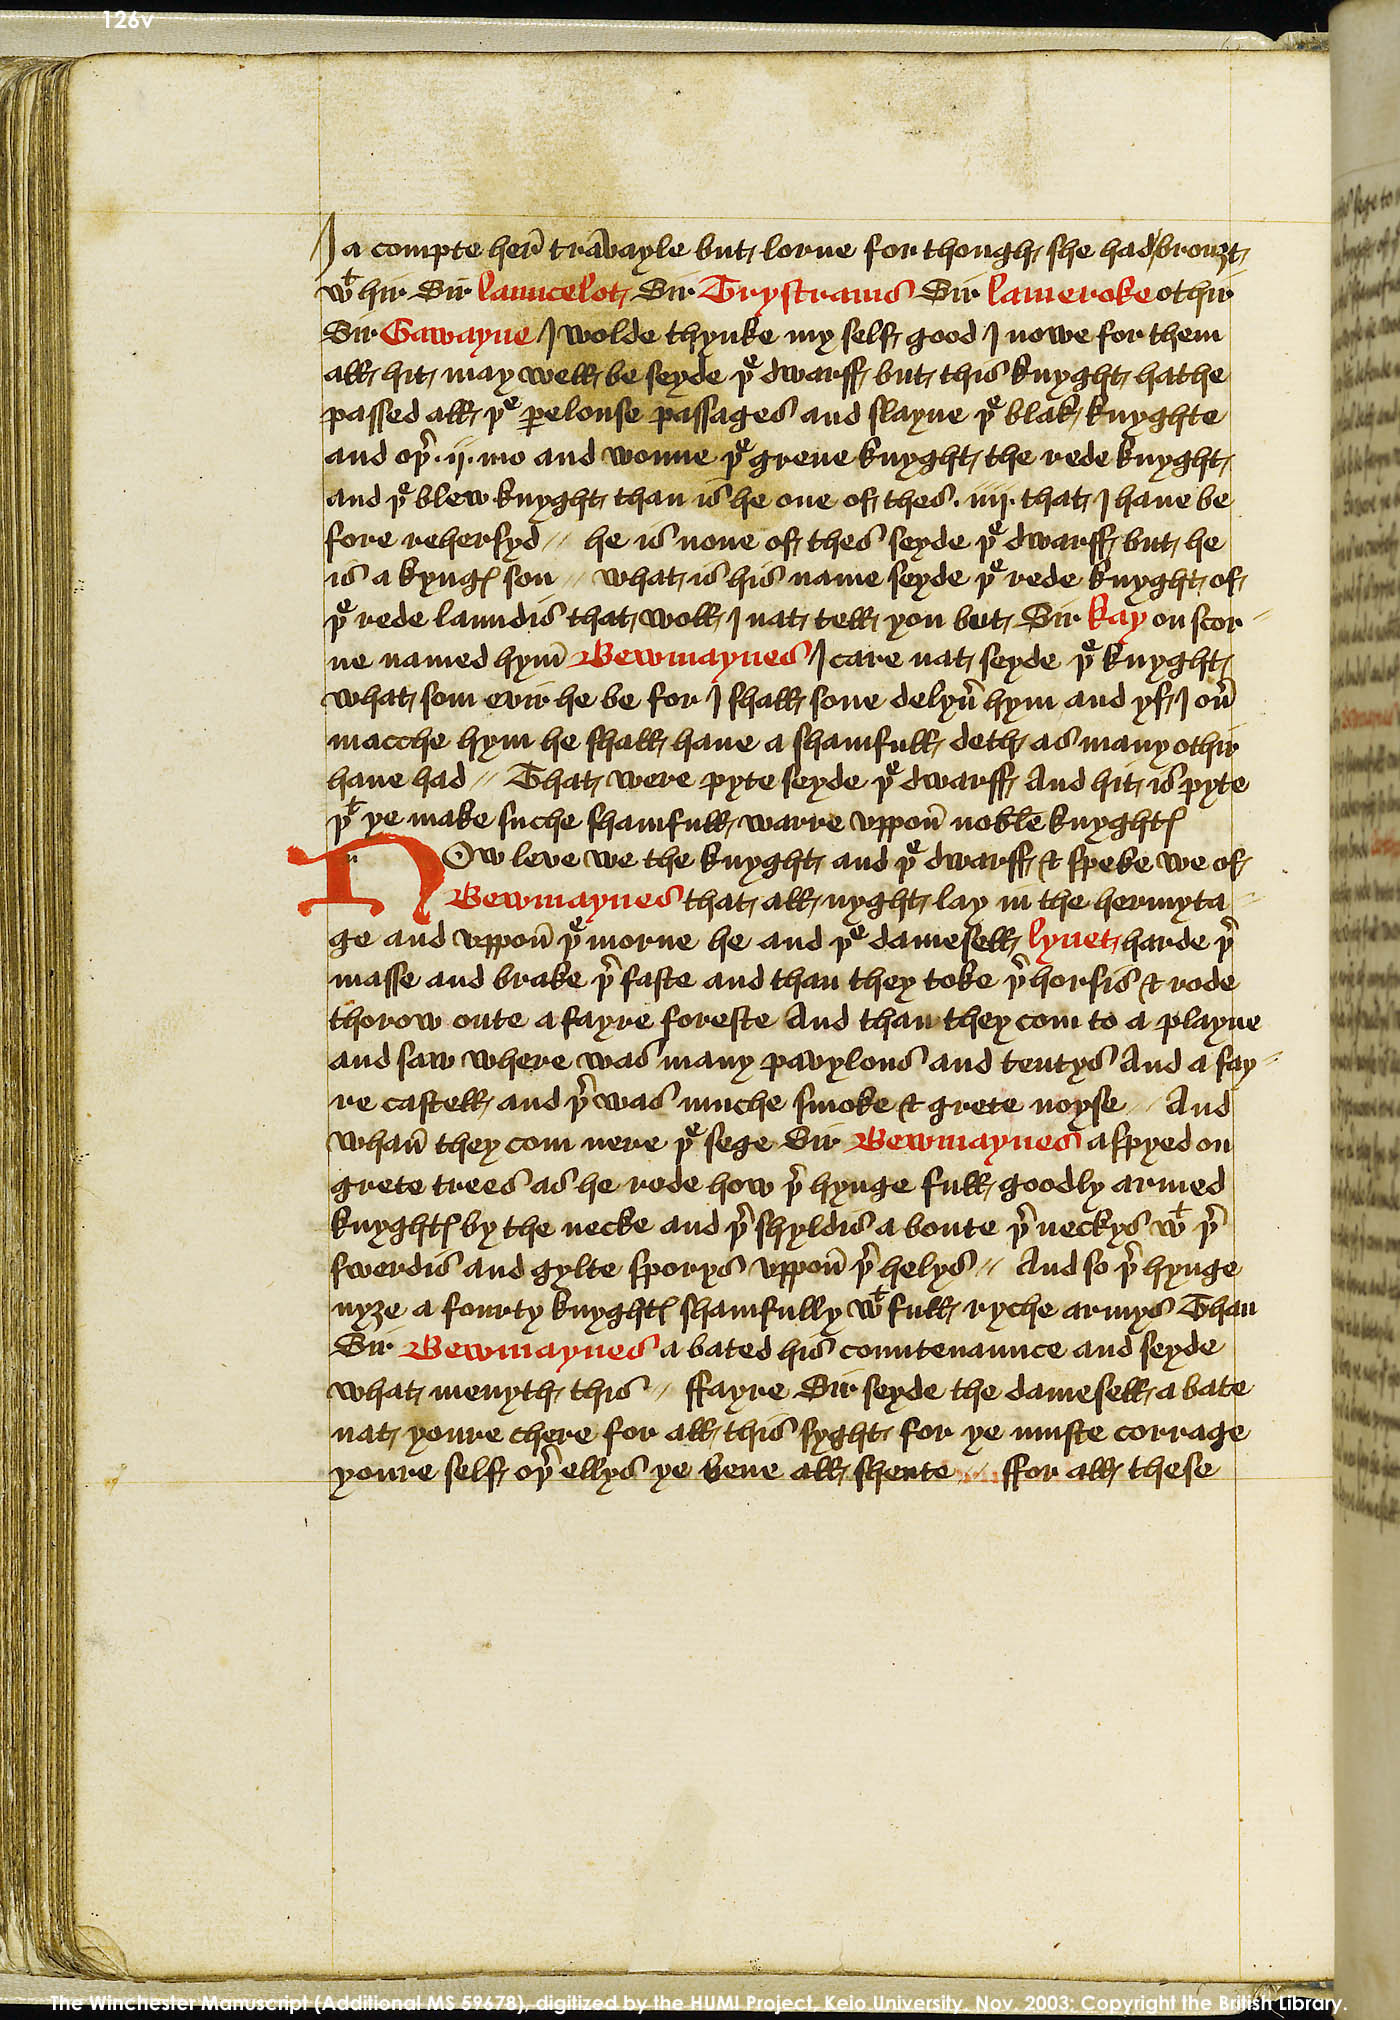 126v
I a compte her̄ trāvayle but lorne for though she had brouȝt
wᵗ hir Sir launcelot Sir Trystrams Sir lameroke othir
Sir Gawayne I wolde thynke my self good I nowe for them
all hit may well be seyde þᵉ dwarff but this knyght hathe
passed all þᵉ ꝑelouse passages and slayne þᵉ blak knyghte
and oþ̄ .ij. mo and wonne þᵉ grene knyght the rede knyght
and þᵉ blew knyght than is he one of thes .iiij. that I haue be
fore rehersyd // he is none of thes seyde þᵉ dwarff but he
is a kyngꝭ son // what is his name seyde þᵉ rede knyght of
þᵉ rede laundis that woll I nat tell you but Sir kay on scor-
ne named hym̄ Bewmaynes I care nat seyde þᵉ knyght
what som evir he be for I shall sone delyū hym and yf I oū
macche hym he shall haue a shamfull deth as many othir
haue had // That were pyte seyde þᵉ dwarff And hit is pyte
þᵗ ye make suche shamfull warre vppon̄ noble knyghtꝭ
NOw leve we the knyght and þᵉ dwarff & speke we of
Bewmaynes that all nyght lay in the hermyta-
ge and vppon̄ þᵉ morne he and þᵉ damesell lynet harde þ̄
masse and brake þ̄ faste and than they toke þ̄ horsis & rode
thorow oute a fayre foreste And than they com to a playne
and saw where was many pavylons and tentys And a fay-
re castell and þ̄ was muche smoke & grete noyse // And
whan̄ they com nere þᵉ sege Sir Bewmaynes aspyed on
grete trees as he rode how þ̄ hynge full goodly armed
knyghtꝭ by the necke and þ̄ shyldis a boute þ̄ neckys wᵗ þ̄
swerdis and gylte sporys vppon̄ þ̄ helys // And so þ̄ hynge
nyȝe a fourty knyghtꝭ shamfully wᵗ full ryche armys Than
Sir Bewmaynes a bated his countenaunce and seyde
what menyth this // ffayre Sir seyde the damesell a bate
nat youre chere for all this syght for ye muste corrage
youre self oþ̄ ellys ye bene all shente // ffor all these
The Winchester Manuscript (Additional MS 59678), digitized by the HUMI Project, Keio University, Nov. 2003; Copyright the British Library.